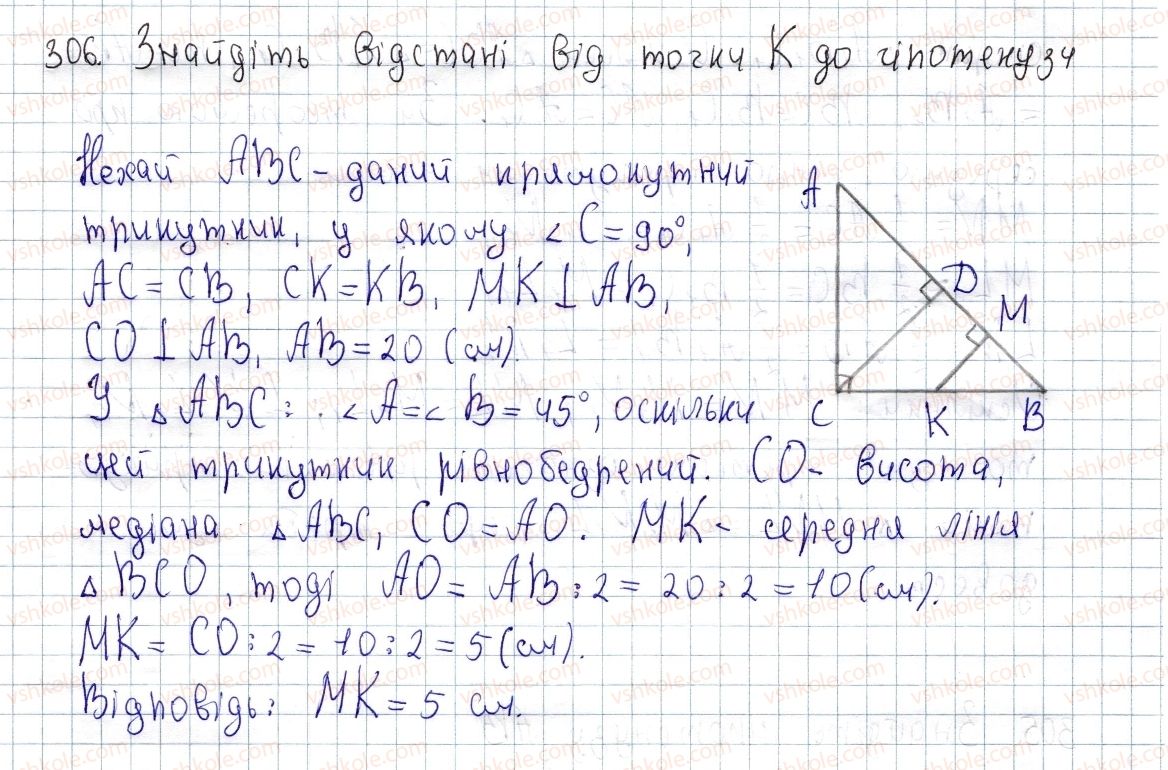 306. Знайдіть відстані від точки К до гіпотенузи
Нехай АВС - даний прямокутний
трикутник, у якому ∠C = 90°,
AC = CB, CK = KB, MK ⊥ AB,
CO ⊥ AB, AB = 20 (см).
У △ABC: ∠A = ∠B = 45°, оскільки
цей трикутник рівнобедрений. CO - висота,
медіана △ABC, CO = AO. MK - середня лінія
△BCO, тоді AO = AB : 2 = 20 : 2 = 10 (см).
MK = CO : 2 = 10 : 2 = 5 (см).
Відповідь: MK = 5 см.
A
D
M
C
K
B